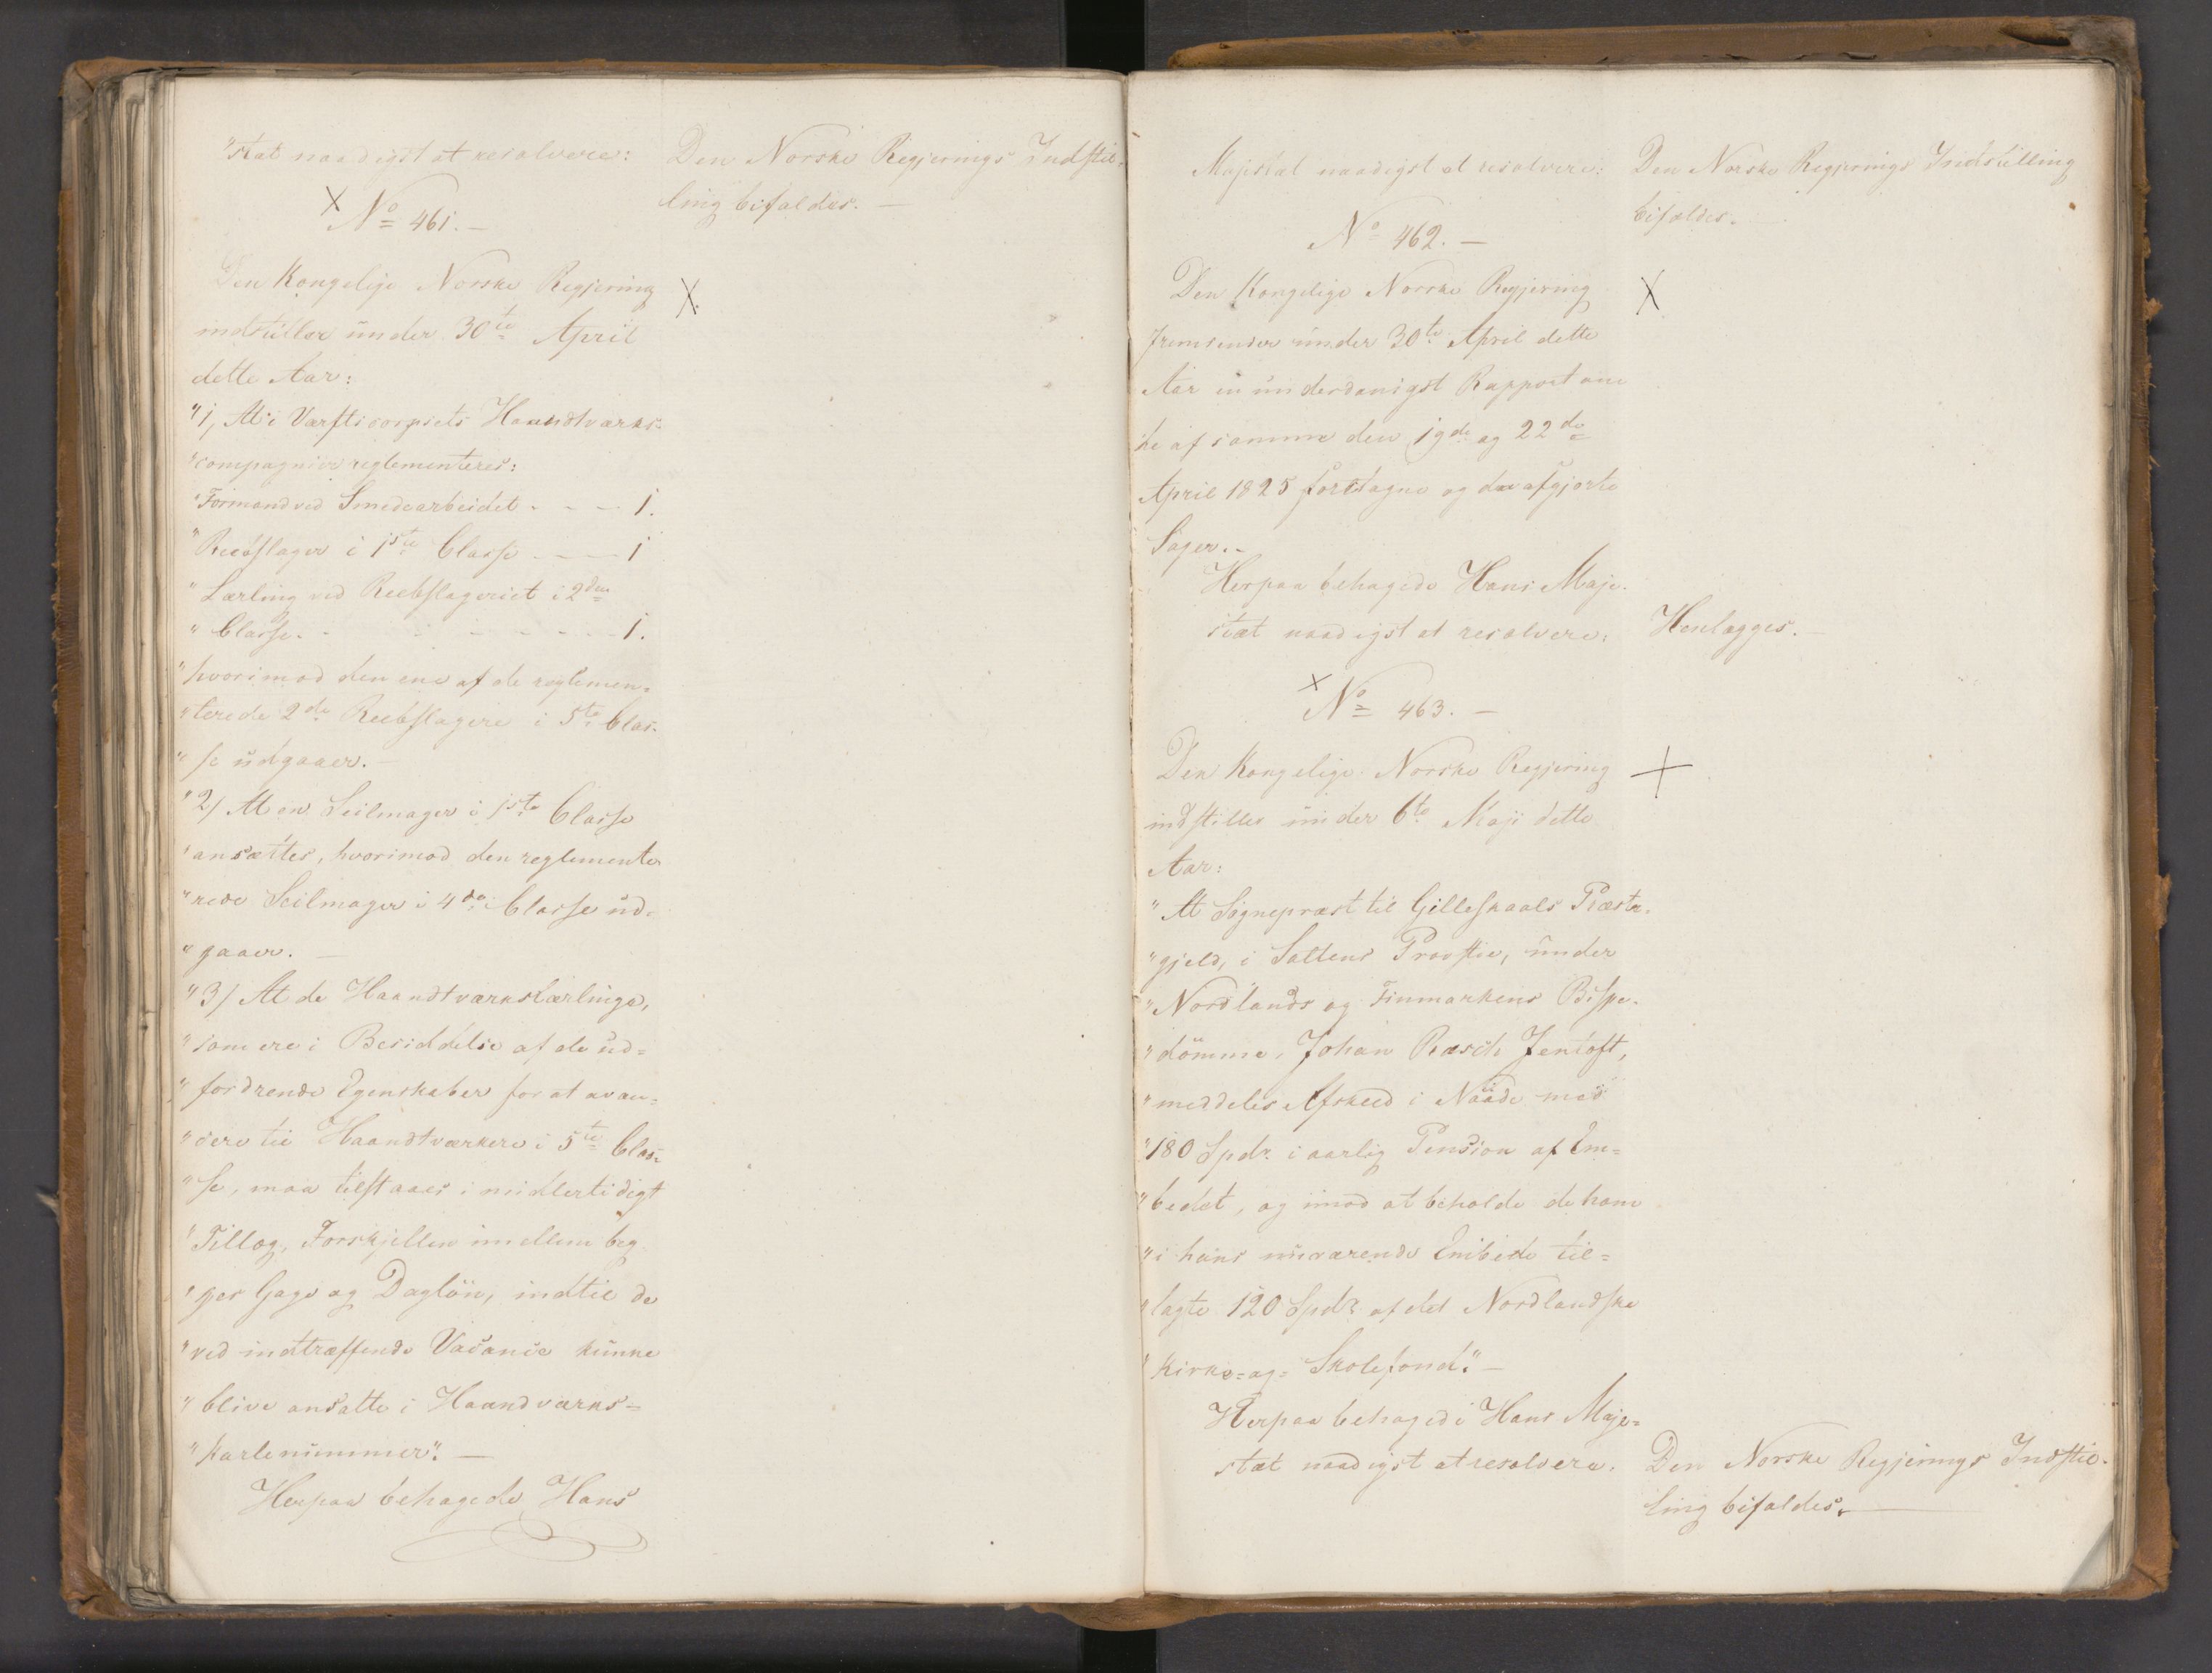 "stæt naadigst at resolvere:
Den Norske Regjerings Indstil-
ling bifaldes. —
X No 461. —
Den Kongelige Norske Regjering
X
indstiller under 30te April
dette Aar:
"1, At i Værftscorpsets Haandtværks-
"compagnie reglementeres:
"Formand ved Smedearbeidet - - - 1.
"Reebslager i 1ste Classe - - - 1
"Lærling ved Reebslageriet i 2den
"Classe. - - - - - - 1.
"hvorimod den ene af de reglemen-
"terede 2de Reebslagere i 5te Clas-
"se udgaaer. —
"2/ At en Seilmager i 1ste Classe
"ansættes, hvorimod den reglemente-
"rede Seilmager i 4de Classe ud-
"gaaer. —
"3/ At de Haandtværkslærlinge,
"som ere i Besiddelse af de ud=
"fordrende Egenskaber for at avan=
"cere til Haandtværkere i 5te Clas=
"se, maa tilstaaes i midlertidigt
"Tillæg, Forskjellen imellem beg
"ges Gage og Daglön, indtil de
"ved indtræffende Vacance kunne
"blive ansatte i Haandværks=
"karlenummer". —
Herpaa behagede Hans
Majestæt naadigst at resolvere:
Den Norske Regjerings Indstilling
bifaldes. —
No 462. —
Den Kongelige Norske Regjering
X
fremsender under 30te April dette
Aar en underdanigst Rapport om
de af samme den 19de og 22de
April 1825 foretagne og der afgjorte
Sager. -
Herpaa behagede Hans Maje-
stæt naadigst at resolvere:
Henlægges. —
X No 463. —
Den Kongelige Norske Regjering
X
indstiller under 6te Maji dette
Aar:
"At Sognepræst til Gilleskaals Præste-
"gjeld, i Saltens Provstie, under
"Nordlands og Finmarkens Bispe-
"dömme, Johan Rasch Jentoft,
"meddeles Afskeed i Naade med
"180 Spdr. i aarlig Pension af Em=
"bedet, og imod at beholde de ham
"i hans nuværende Embede til=
"lagte 120 Spdr. af det Nordlandske
"Kirke=og=Skolefond." —
Herpaa behagede Hans Maje=
stæt naadigst at resolvere:
Den Norske Regjerings Indstil-
ling bifaldes. —